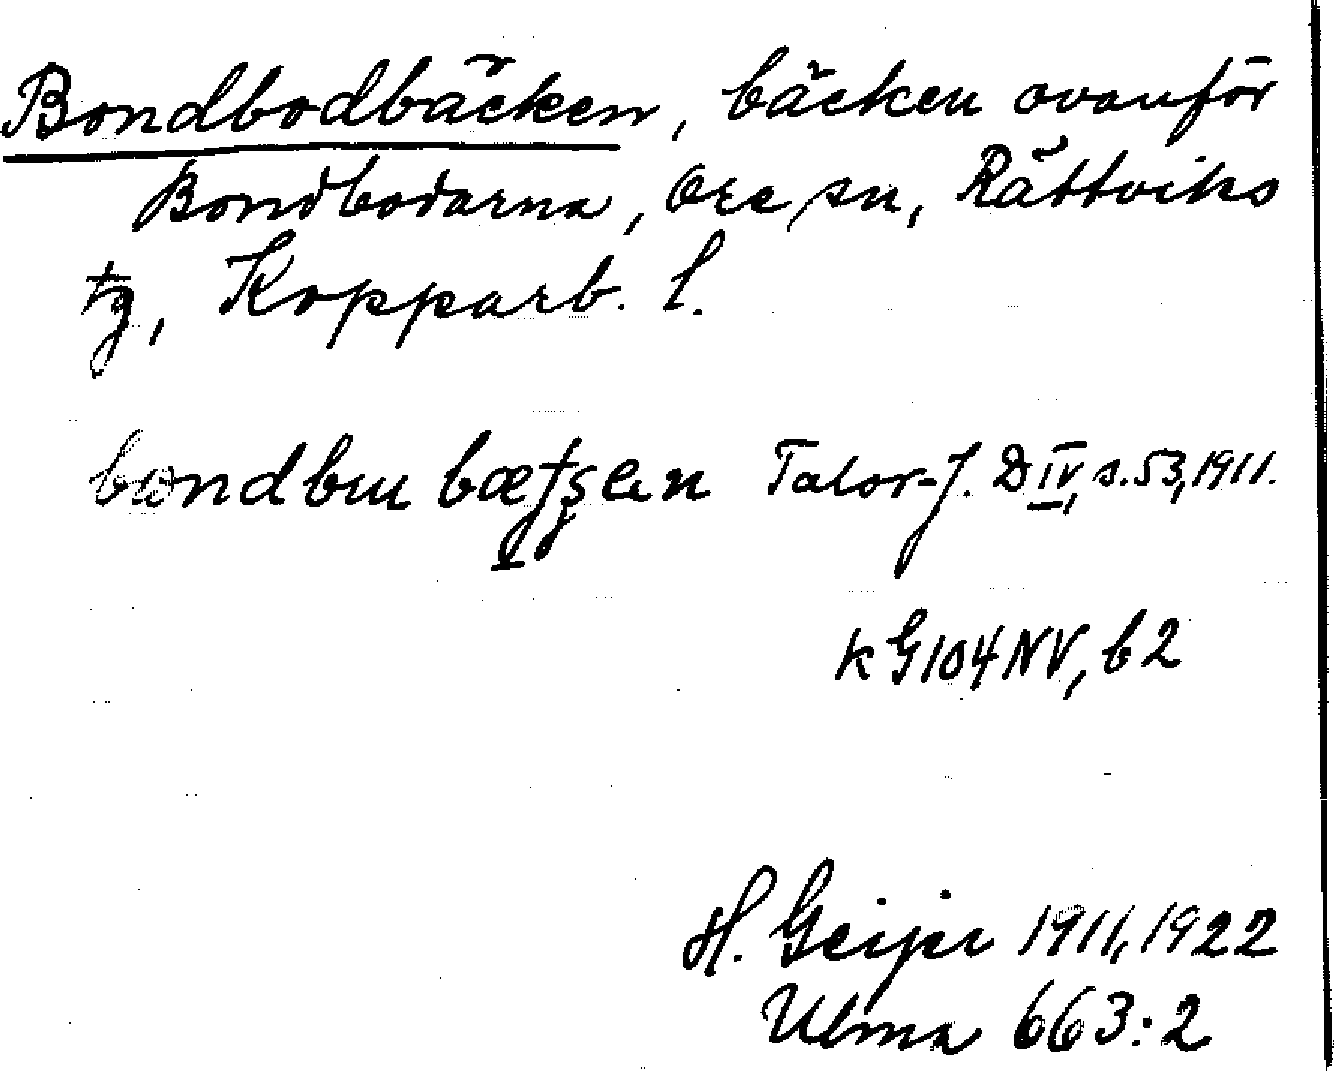 Bondbodbäcken, bäcken ovanför
Bondbodarna, Ore sn, Rättviks
tg, Kopparb. l.
Talor-J. D IV, s. 53, 1911.
k G104NV, b2
H. Geijer 1911, 1922
Ulma 663:2